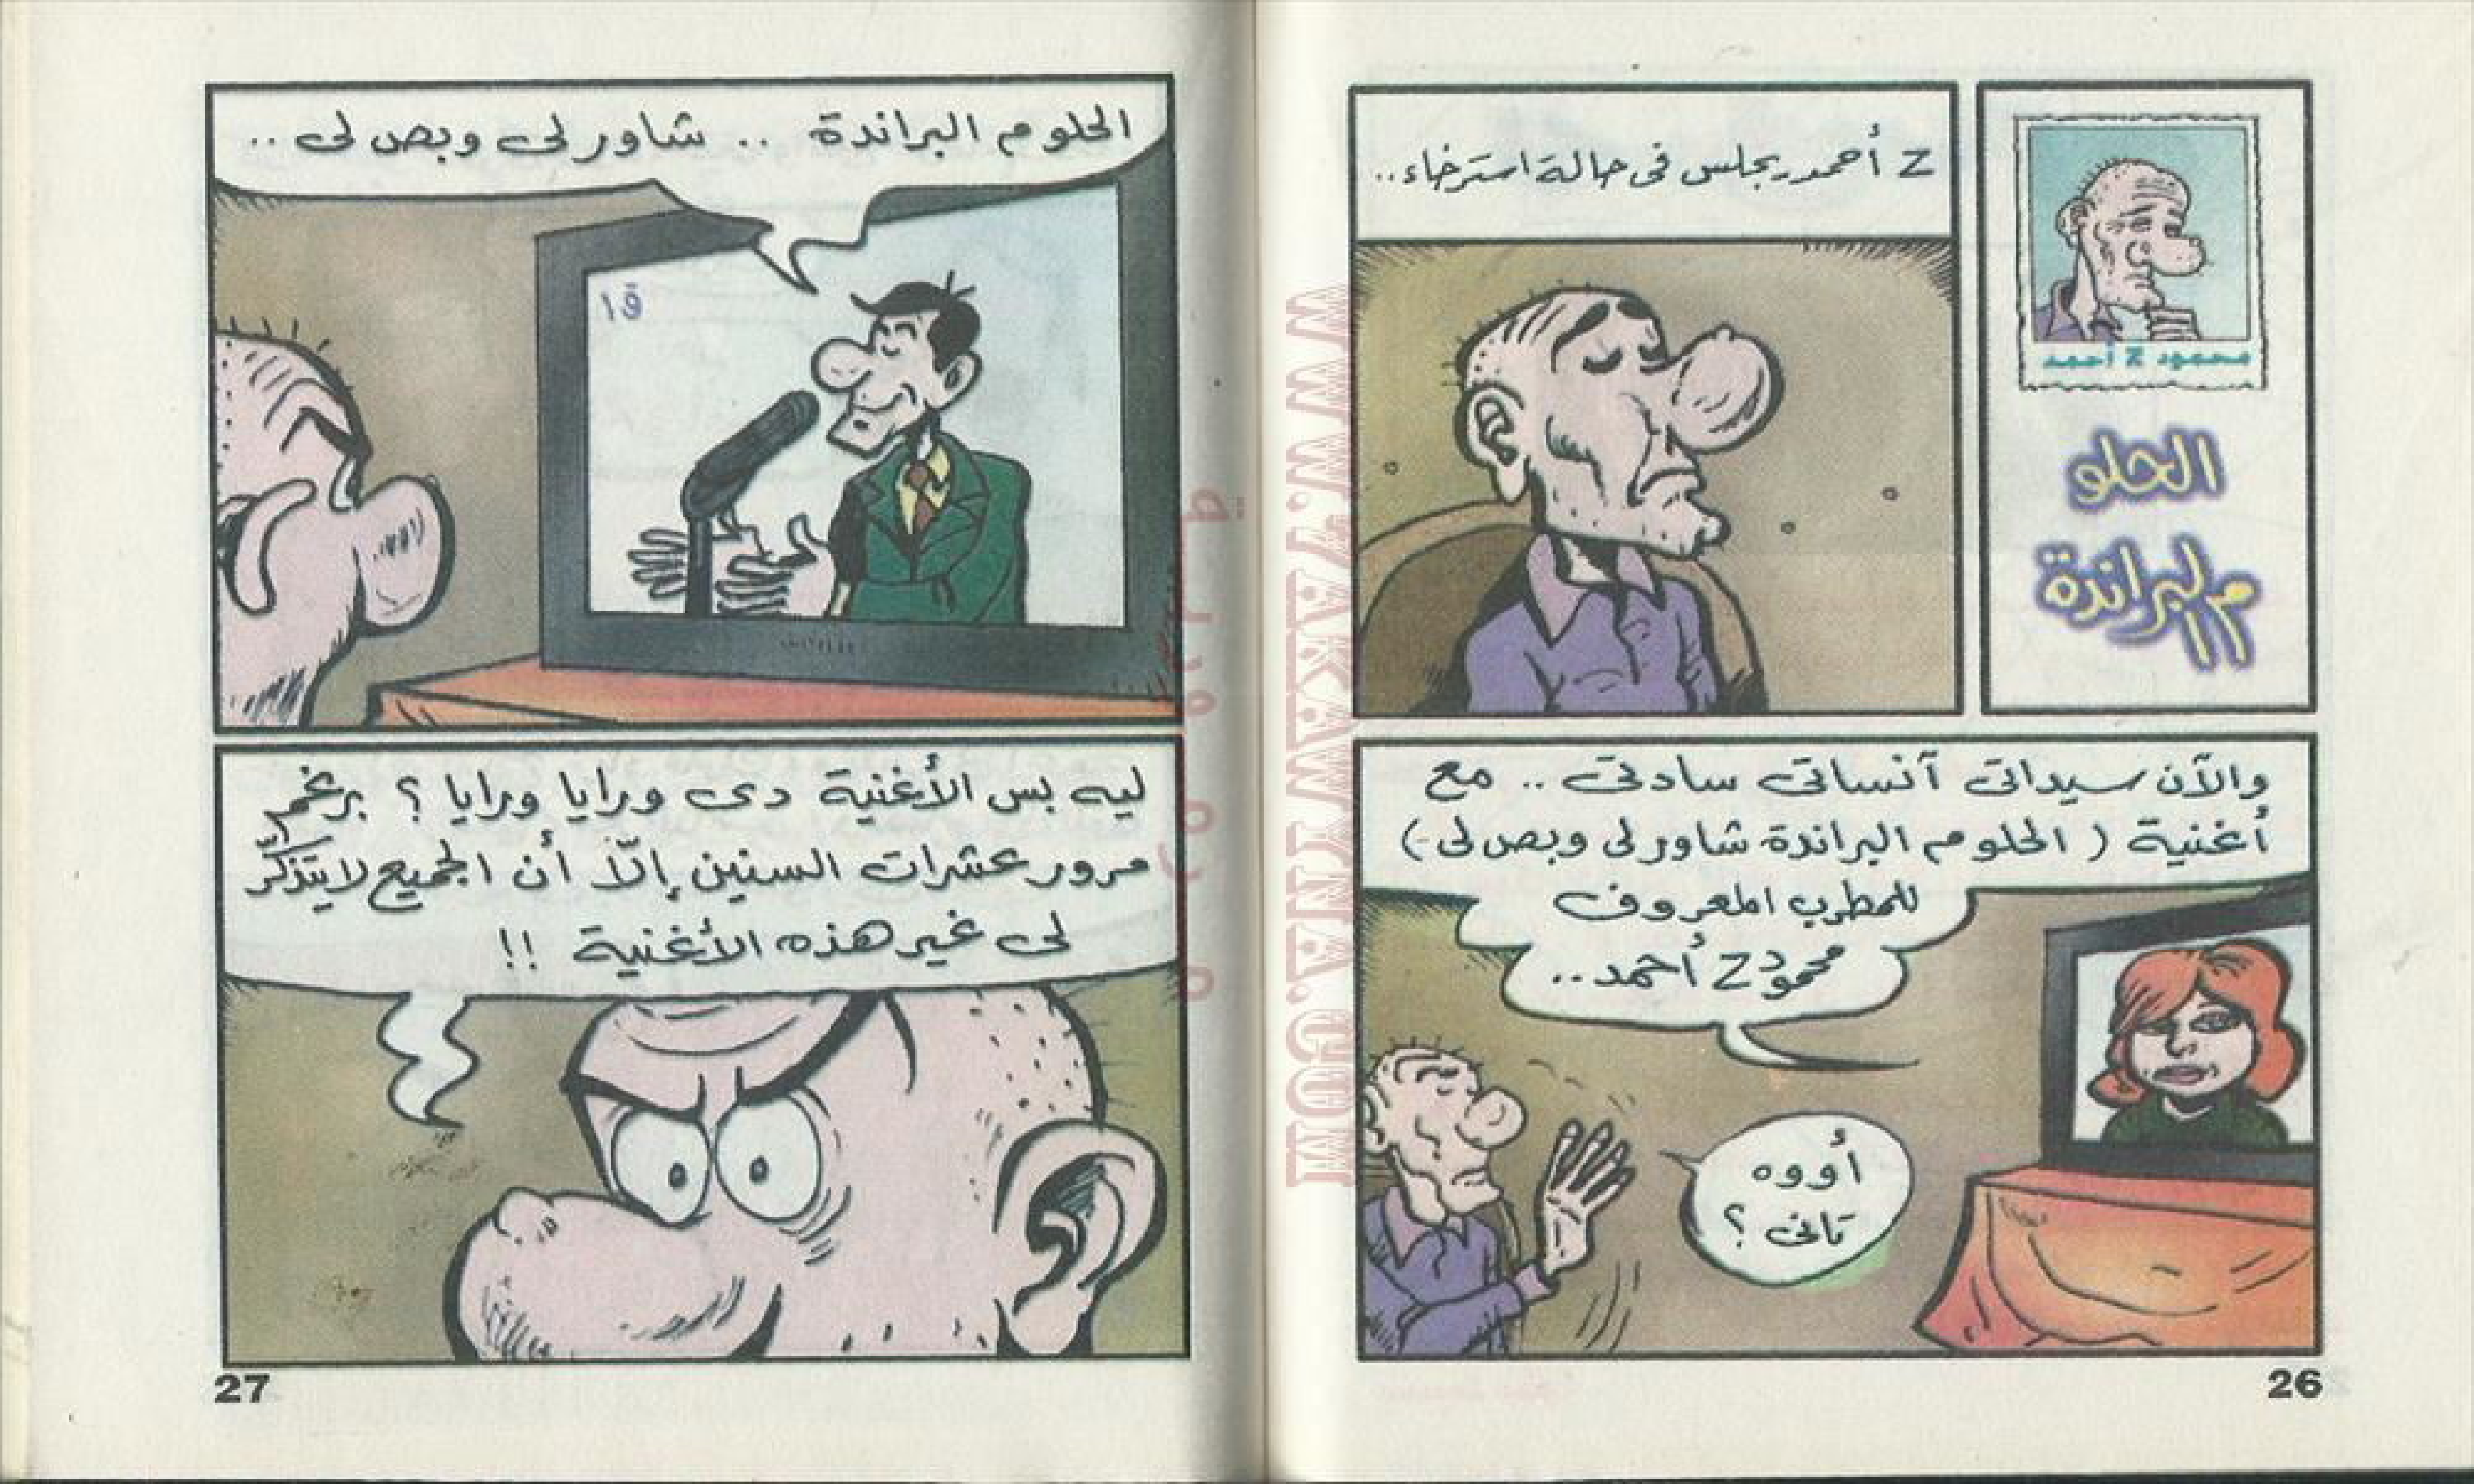 محمود Z أحمد
الحلو
م البراندة
Z أحمد يجلس فى حالة استرخاء..
والآن سيداتى آنساتى سادتى .. مع
أغنية ( الحلو م البراندة شاور لى وبص لى - )
للمطرب المعروف
محمود Z أحمد ..
أووه
تانى ؟
26
الحلو م البراندة .. شاور لى وبص لى ..
ق١
ليه بس الأغنية دى ورايا ورايا ؟ برغم
مرور عشرات السنين إلّا أن الجميع لا يتذكّر
لى غير هذه الأغنية !!
27